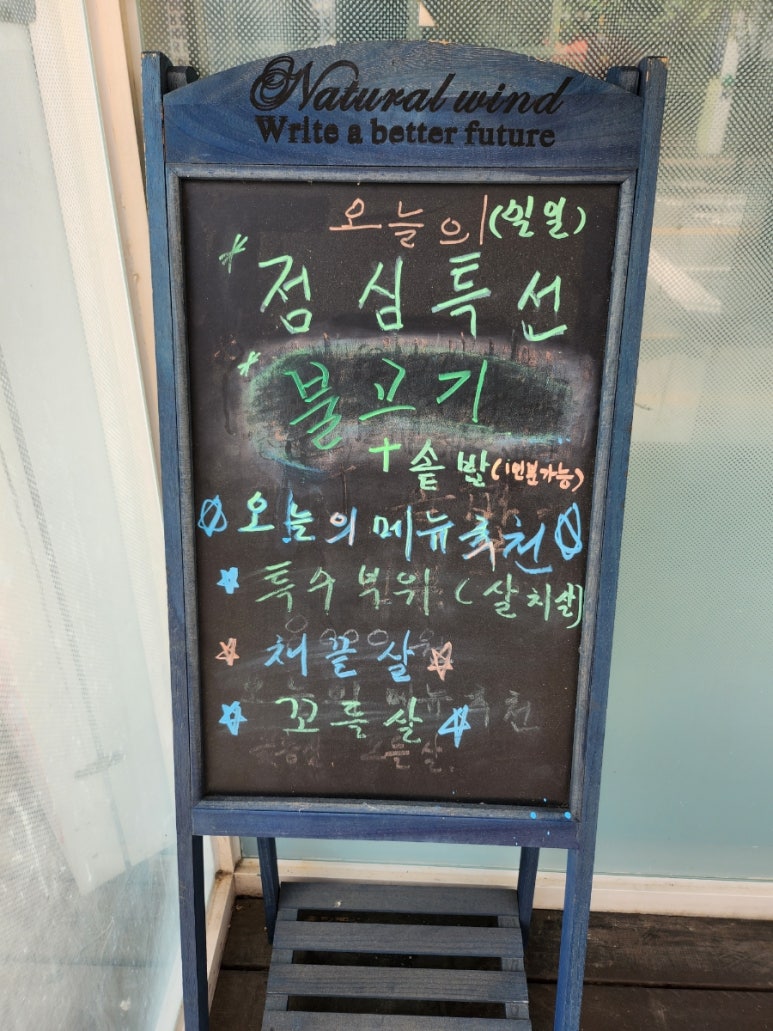 Natural wind
Write a better future
오늘의
* 점심특선
* 불고기
+ 솥밥 (1인분가능)
오늘의 메뉴추천
특수부위 (살치살)
채끝살
꼬들살